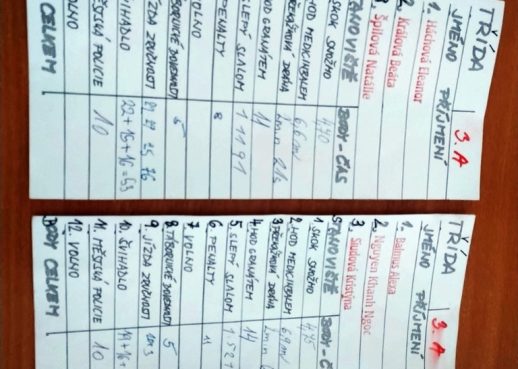 TŘÍDA 3. A
JMÉNO PŘÍJMENÍ
1. Háchová Eleanor
2. Králová Beáta
3. Špilová Natálie
STANOVIŠTĚ BODY - ČAS
SKOK SNOŽMO 470
HOD MEDICINBALEM 6,6m
PŘEKÁŽKOVÁ DRÁHA 2min 21s
HOD GRANÁTEM 11
SLEPÝ SLALOM
PENALTY 8
VOLNO
TÁBORNICKÉ DOVEDNOSTI 5
JÍZDA ZRUČNOSTI
ŠVIHADLO 22+15+16=53
MĚSTSKÁ POLICIE 10
VOLNO
CELKEM
TŘÍDA 3. A
JMÉNO PŘÍJMENÍ
1. Balmus Alexa
2. Nguyen Khanh Ngoc
3. Studová Kristýna
STANOVIŠTĚ BODY - Č
1. SKOK SNOŽMO 475
2. HOD MEDICINBALEM 6,9m
3. PŘEKÁŽKOVÁ DRÁHA
4. HOD GRANÁTEM 14
5. SLEPÝ SLALOM
6. PENALTY 11
7. VOLNO
8. TÁBORNICKÉ DOVEDNOSTI 5
9. JÍZDA ZRUČNOSTI
10. ŠVIHADLO 19+16+
11. MĚSTSKÁ POLICIE 10
12. VOLNO
BODY CELKEM